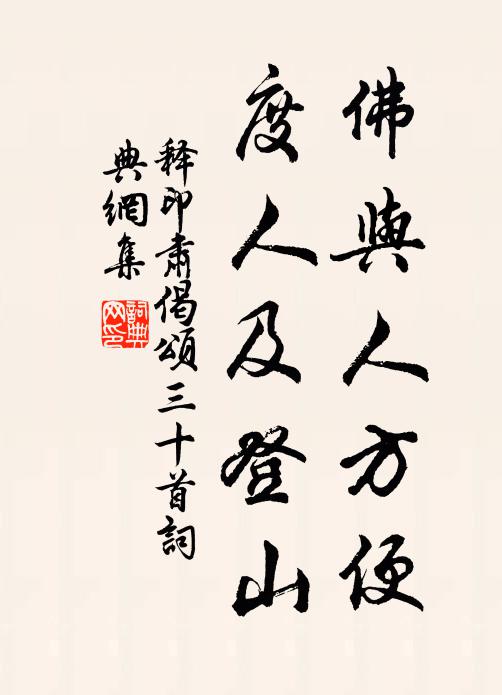 佛與人方便
度人及登山
释印肅偈頌三十首詞
典網集
詞典
网印